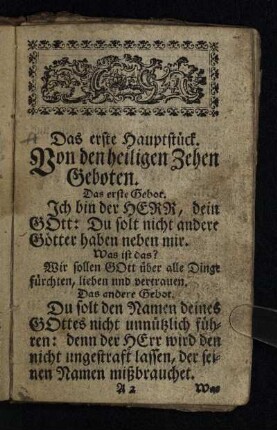 Das erste Hauptstück.
Von den heiligen Zehen
Geboten.
Das erste Gebot.
Ich bin der HERR, dein
GOtt: Du solt nicht andere
Götter haben neben mir.
Was ist das?
Wir sollen GOtt über alle Dinge
fürchten, lieben und vertrauen.
Das andere Gebot.
Du solt den Namen deines
GOttes nicht unnützlich füh-
ren: denn der HErr wird den
nicht ungestraft lassen, der sei-
nen Namen mißbrauchet.
A 2 Was